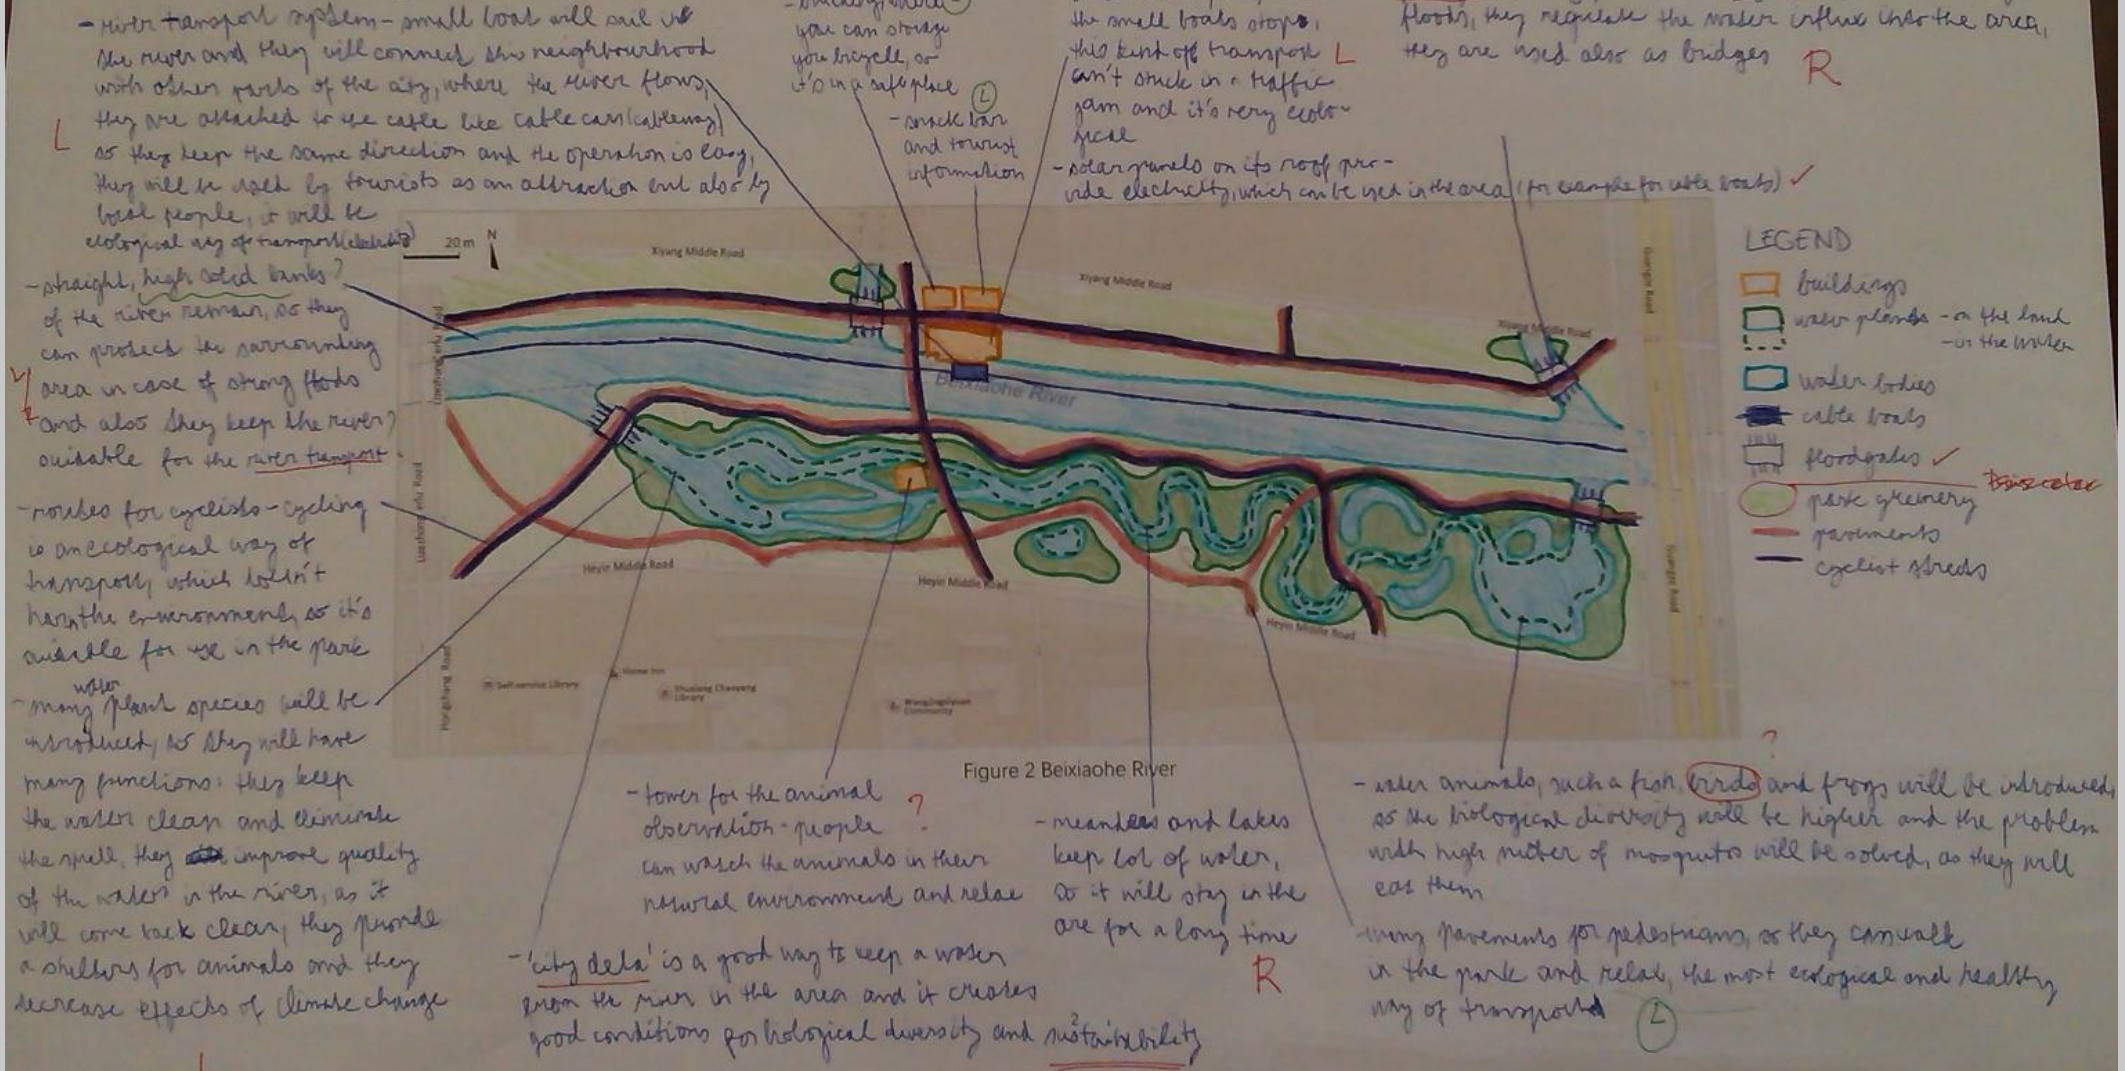 - river transport system - small boat will sail in
the river and they will connect this neighbourhood
with other parts of the city, where the river flows,
they are attached to the cable like cable cars (cableway)
so they keep the same direction and the operation is easy,
they will be used by tourists as an attraction but also by
local people, it will be
ecological way of transport
L
you can storage
you bicycle, so
it's in a safe place
L
- snack bar
and tourist
information
the small boats stops,
this kind off transport L
can't stuck in a traffic
jam and it's very ecolo-
gical
- solar panels on its roof pro-
vide electricity, which can be used in the area (for example for cable boats) ✓
floods, they regulate the water influx into the area,
they are used also as bridges R
- straight, high banks?
of the river remain, so they
can protect the surrounding
area in case of strong floods
and also they keep the river?
suitable for the river transport
- routes for cyclists - cycling
is an ecological way of
transport, which doesn't
harm the environment, so it's
suitable for use in the park
water
- many plant species will be
introduced, so they will have
many functions: they keep
the water clean and eliminate
the smell, they improve quality
of the water in the river, as it
will come back clean, they provide
a shelters for animals and they
decrease effects of climate change
20 m
N
Xiyang Middle Road
Xiyang Middle Road
Xiyang Middle Road
Guangze Road
Guangze Road
Beixiaohe River
Heyin Middle Road
Heyin Middle Road
Heyin Middle Road
Hongchang Road
Self-service Library
Home Inn
Chaoyang
Library
Community
LEGEND
buildings
water plants - on the land
- in the water
water bodies
cable boats
floodgates ✓
park greenery
pavements
cyclist streets
Figure 2 Beixiaohe River
- tower for the animal
observation - people ?
can watch the animals in their
natural environment and relax
- 'city delta' is a good way to keep a water
from the river in the area and it creates
good conditions for biological diversity and sustainability
?
- meanders and lakes
keep lot of water,
so it will stay in the
are for a long time
R
?
- water animals, such a fish, birds and frogs will be introduced,
so the biological diversity will be higher and the problem
with high number of mosquitos will be solved, as they will
eat them
- many pavements for pedestrians, so they can walk
in the park and relax, the most ecological and healthy
way of transport
L